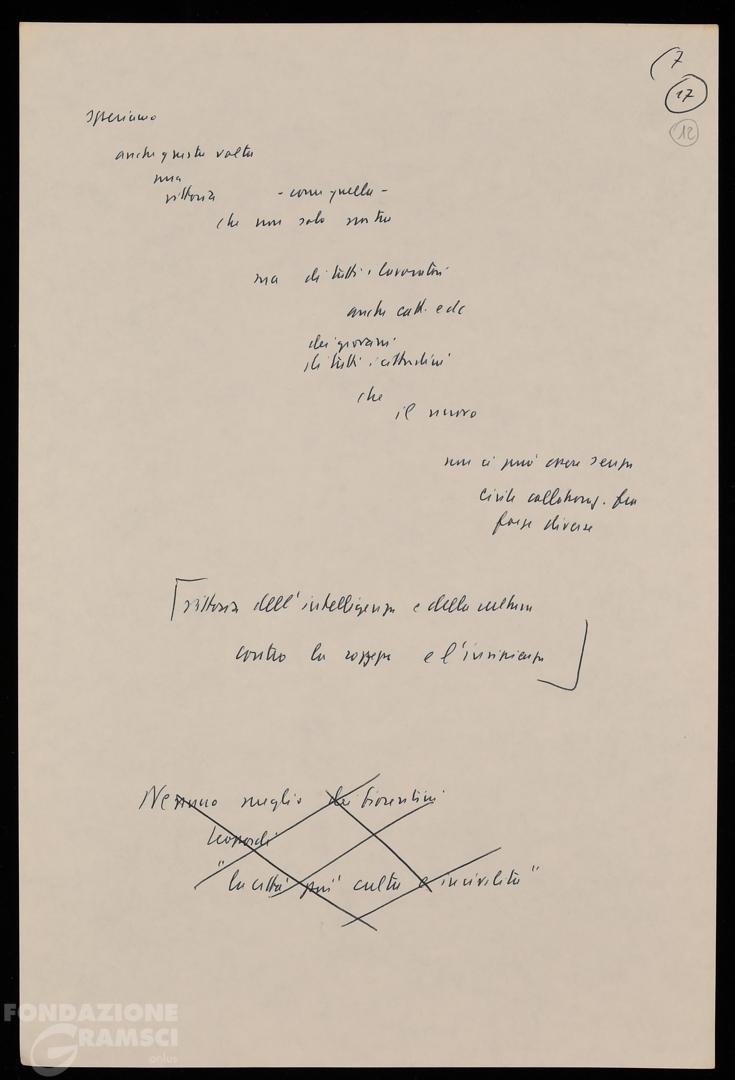 7
17
12
speriamo
anche questa volta
una
vittoria - come quella -
che non solo nostra
ma di tutti i lavoratori
anche catt. e dc
dei giovani
di tutti i cittadini
che
il nuovo
non ci può essere senza
civile collaboraz. fra
forze diverse
[vittoria dell'intelligenza e della cultura
contro la rozzezza e l'insipienza]
Nessuno meglio dei fiorentini
Leopardi
"la città più culta e incivilita"
FONDAZIONE
GRAMSCI
onlus